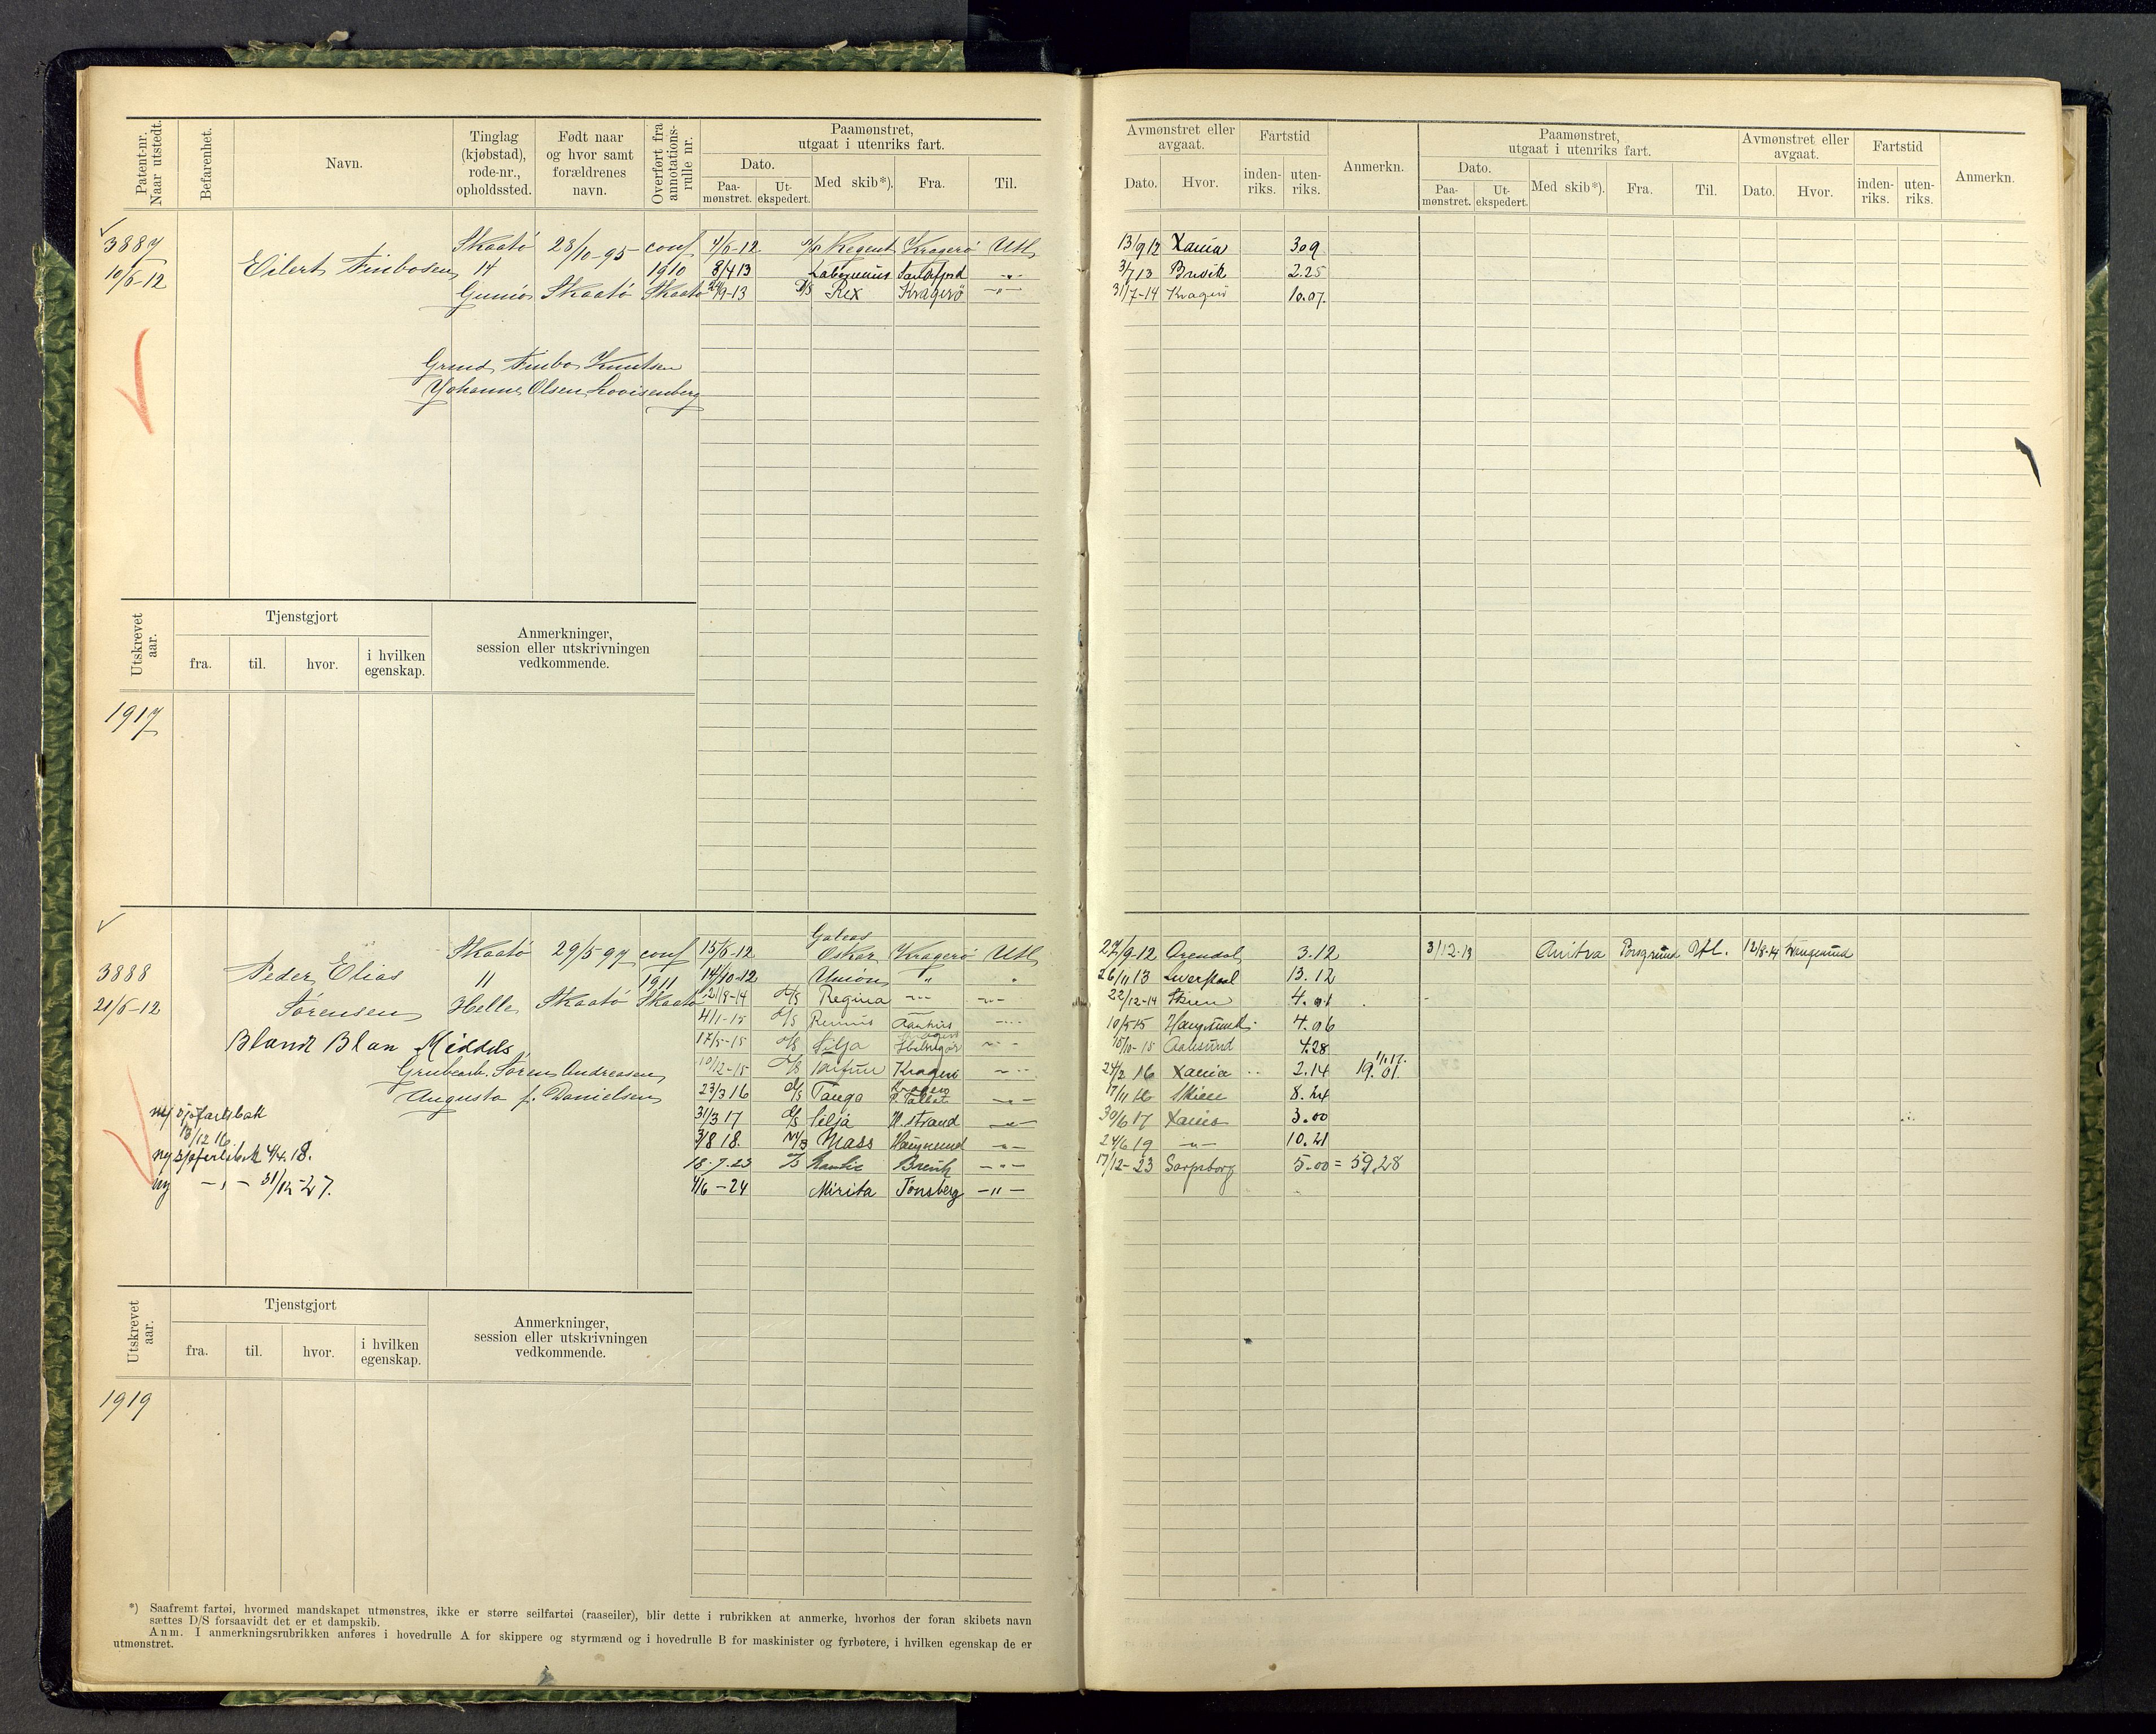 Patent-nr. Naar utstedt.
Befarenhet.
Navn.
Tinglag (kjøbstad), rode-nr., opholdssted.
Født naar og hvor samt forældrenes navn.
Overført fra annotations-rulle nr.
Paamønstret, utgaat i utenriks fart.
Dato.
Paa-mønstret.
Ut-ekspedert.
Med skib*).
Fra.
Til.
Avmønstret eller avgaat.
Dato.
Hvor.
Fartstid
inden-riks.
uten-riks.
Anmerkn.
Paamønstret, utgaat i utenriks fart.
Dato.
Paa-mønstret.
Ut-ekspedert.
Med skib*).
Fra.
Til.
Avmønstret eller avgaat.
Dato.
Hvor.
Fartstid
inden-riks.
uten-riks.
Anmerkn.
3887 Skaatö 28/10-95 conf 7/6-12 Regent Kragerö Utl 13/9 12 Xania 309
10/6-12 Eilert Finbosen 14 1910 8/4 13 -"- 3/7 13 2.25
Gumö Skaatö Skaatö 24/9-13 D/S Rex Kragerö -"- 31/7-14 Kragerö 10.07.
Finbo Knutsen
Johanne Olsen Lovisenberg
Utskrevet aar.
Tjenstgjort
fra.
til.
hvor.
i hvilken egenskap.
Anmerkninger, session eller utskrivningen vedkommende.
1917
Skaatö 29/5-97 conf 15/6-12 Galeas Oskar Kragerö Utl 27/9-12 Arendal 3.12 3/12-13 Anitra Porsgrund Utl. 12/8-14 Haugesund
3888 Peder Elias 11 1911 14/10-12 Union " " 26/11 13 Liverpool 13.12
21/6-12 Sørensen Helle Skaatö Skaatö 21/8-14 D/S Regina -"- -"- 22/12-14 Skien 4.01
4/1-15 D/S Aarhus -"- 10/5-15 Haugesund 4.06
Bland Blan Middels 17/5-15 D/S Silja -"- 15/10-15 Aalesund 4.28
Grubearb. Søren Andreasen 10/12-15 D/S Kragerö -"- 24/2 16 Xania 2.14 19.01.
Augusta f. Danielsen 23/3 16 D/S Tanga Kragerö -"- 17/11 16 Skien 8.24
ny sjøfartsbok 13/12 16. 31/3 17 D/S Silja H. strand -"- 30/6 17 Xania 3.00
3/8 18. M/S Mass Haugesund -"- 24/6 19 -"- 10.21
ny sjøfartsbok 4/4.18. 18.7.23 Brevik -"- 17/12-23 Sarpsborg 5.00 = 59.28
ny -"- 31/12-27. 4/6-24 Mirita Tønsberg -"-
Utskrevet aar.
Tjenstgjort
fra.
til.
hvor.
i hvilken egenskap.
Anmerkninger, session eller utskrivningen vedkommende.
1919
*) Saafremt fartøi, hvormed mandskapet utmønstres, ikke er større seilfartøi (raaseiler), blir dette i rubrikken at anmerke, hvorhos der foran skibets navn
sættes D/S forsaavidt det er et dampskib.
Anm. I anmerkningsrubrikken anføres i hovedrulle A for skippere og styrmænd og i hovedrulle B for maskinister og fyrbøtere, i hvilken egenskap de er
utmønstret.